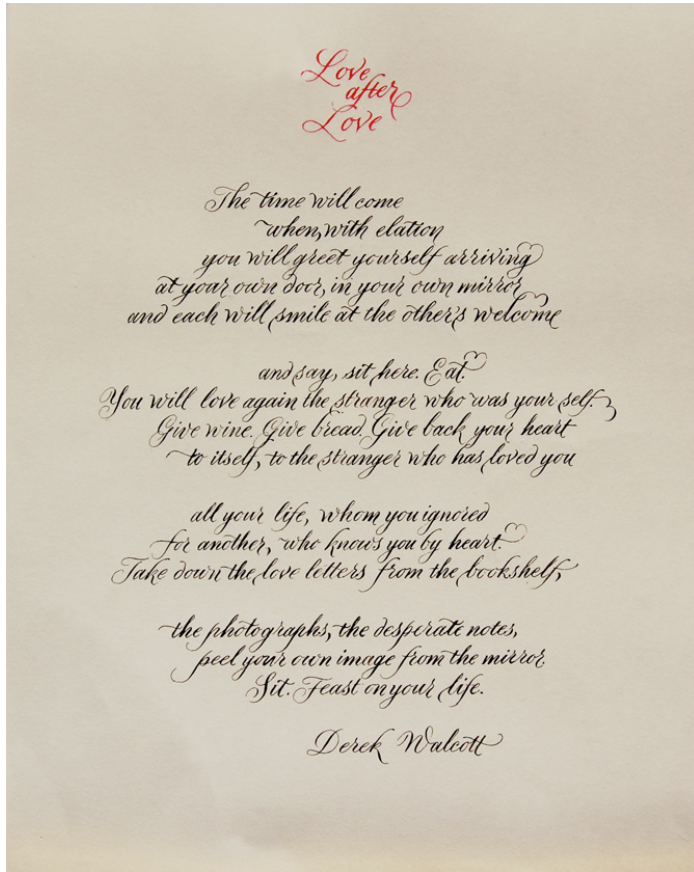 Love
after
Love
The time will come
when, with elation
you will greet yourself arriving
at your own door, in your own mirror
and each will smile at the other's welcome
and say, sit here. Eat.
You will love again the stranger who was your self.
Give wine. Give bread. Give back your heart
to itself, to the stranger who has loved you
all your life, whom you ignored
for another, who knows you by heart.
Take down the love letters from the bookshelf,
the photographs, the desperate notes,
peel your own image from the mirror.
Sit. Feast on your life.
Derek Walcott